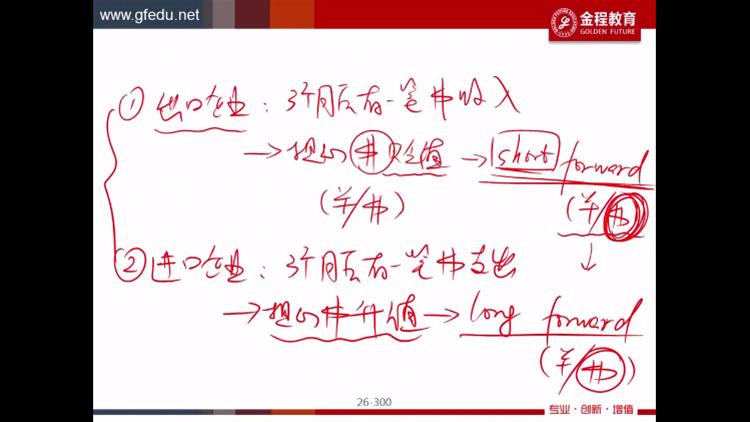 www.gfedu.net
金程教育
GOLDEN FUTURE
① 出口企业：3个月后有一笔$收入
→担心$贬值→short forward
(¥/$)
(¥/$)
↓
② 进口企业：3个月后有一笔$支出
→担心$升值→long forward
(¥/$)
26-300
专业·创新·增值